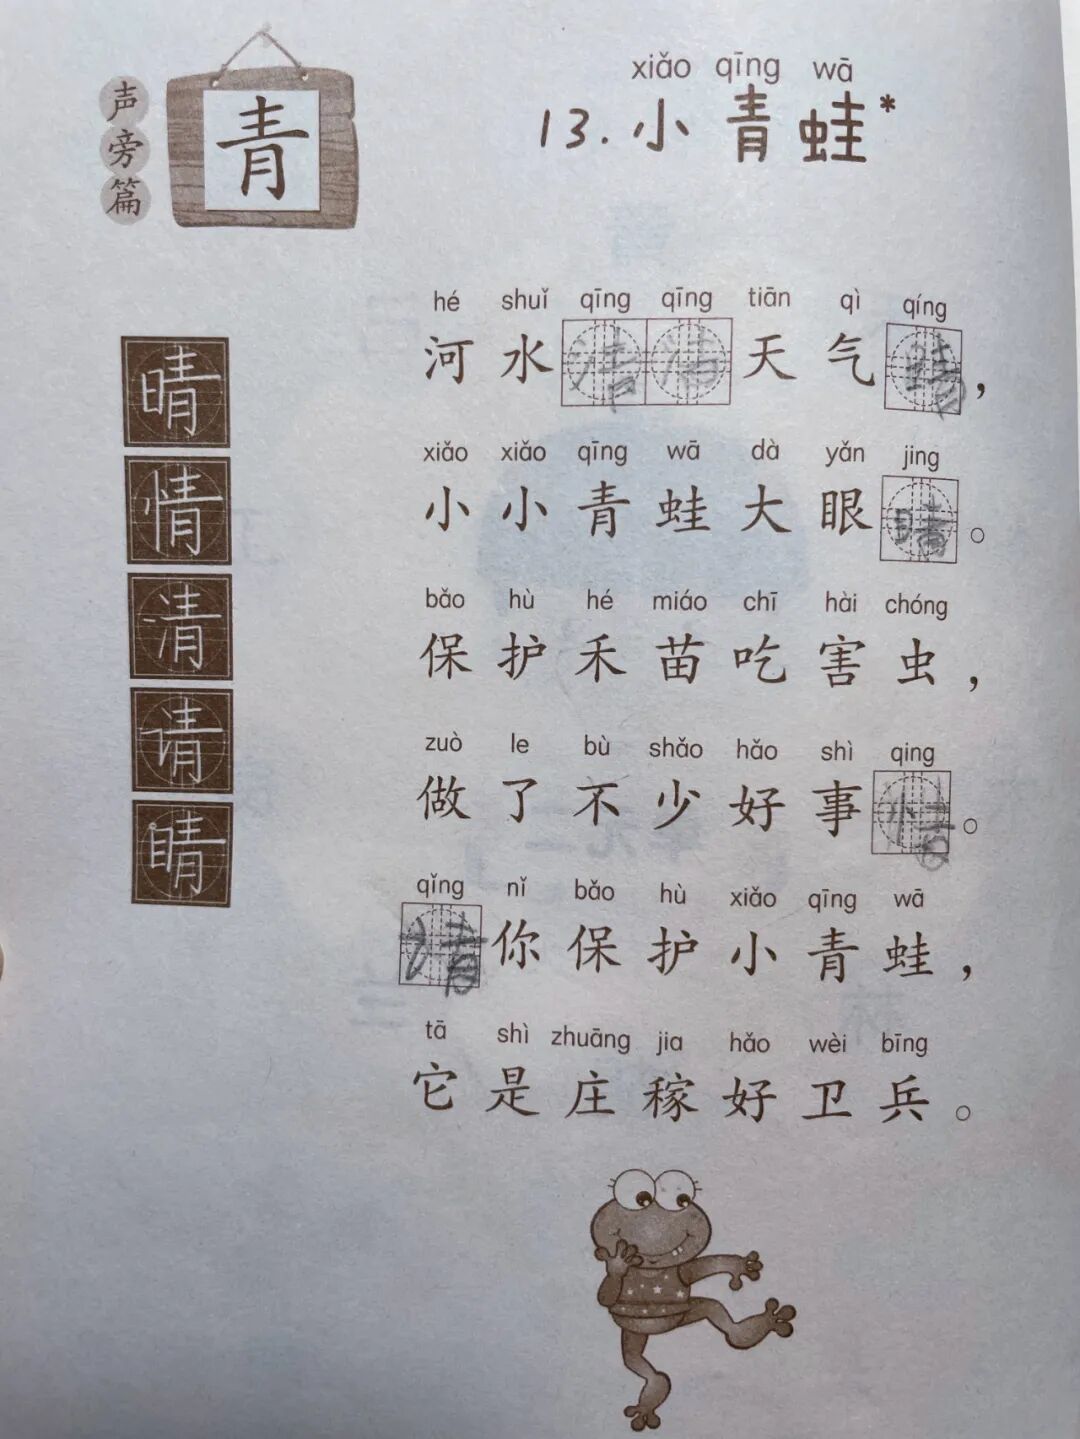 声旁篇
青
xiǎo qīng wā
13.小青蛙*
晴
情
清
请
睛
hé shuǐ qīng qīng tiān qì qíng
河水清清天气晴，
xiǎo xiǎo qīng wā dà yǎn jing
小小青蛙大眼睛。
bǎo hù hé miáo chī hài chóng
保护禾苗吃害虫，
zuò le bù shǎo hǎo shì qing
做了不少好事情。
qǐng nǐ bǎo hù xiǎo qīng wā
请你保护小青蛙，
tā shì zhuāng jia hǎo wèi bīng
它是庄稼好卫兵。